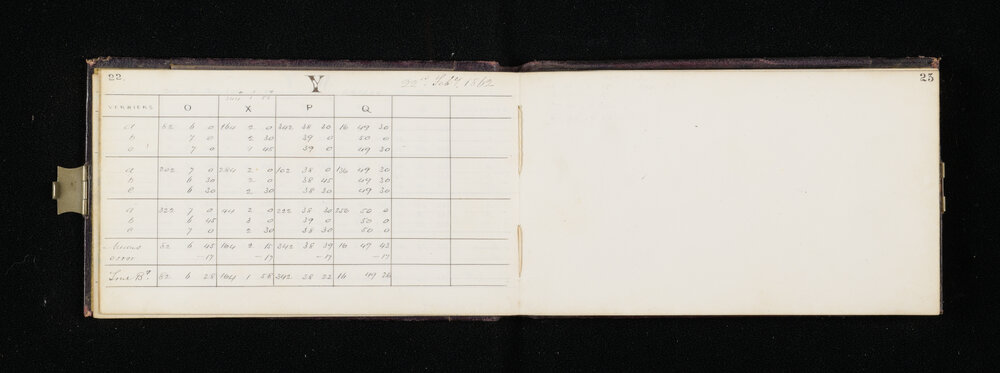 22.
Y
22nd Feby. 1862
VERNIERS O X P Q
a 82 6 0 164 2 0 342 38 30 16 49 30
b 7 0 2 30 39 0 50 0
c 7 0 1 45 39 0 49 30
a 202 7 0 284 2 0 102 38 0 136 49 30
b 6 30 2 0 38 45 49 30
c 6 30 2 30 38 30 49 30
a 322 7 0 44 2 0 222 38 30 256 50 0
b 6 45 3 0 39 0 50 0
c 7 0 2 30 38 30 50 0
Means 82 6 45 164 2 15 342 38 39 16 49 43
error -17 -17 -17 -17
True Bg. 82 6 28 164 1 58 342 38 22 16 49 26
23